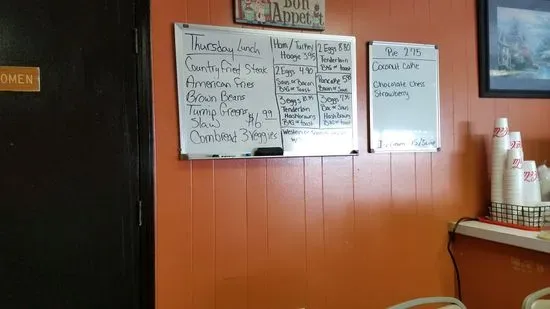 Bon
Appetit
WOMEN
Thursday Lunch
Country Fried Steak
American Fries
Brown Beans
Turnip Greens
Slaw
$6.99
Cornbread 3 Veggies
Ham / Turkey
Hoagie 3.95
2 Eggs 4.90
Saus or Bacon
B&G or Toast
3 eggs
Tenderloin
Hashbrowns
B&G or toast
Western
2 Eggs 8.80
Tenderloin
B&G or toast
Pancake
Bacon or Saus
3 eggs
Bac or Saus
Hashbrowns
B&G or Toast
Pie 2.75
Coconut Cake
Chocolate Chess
Strawberry
Ice Cream